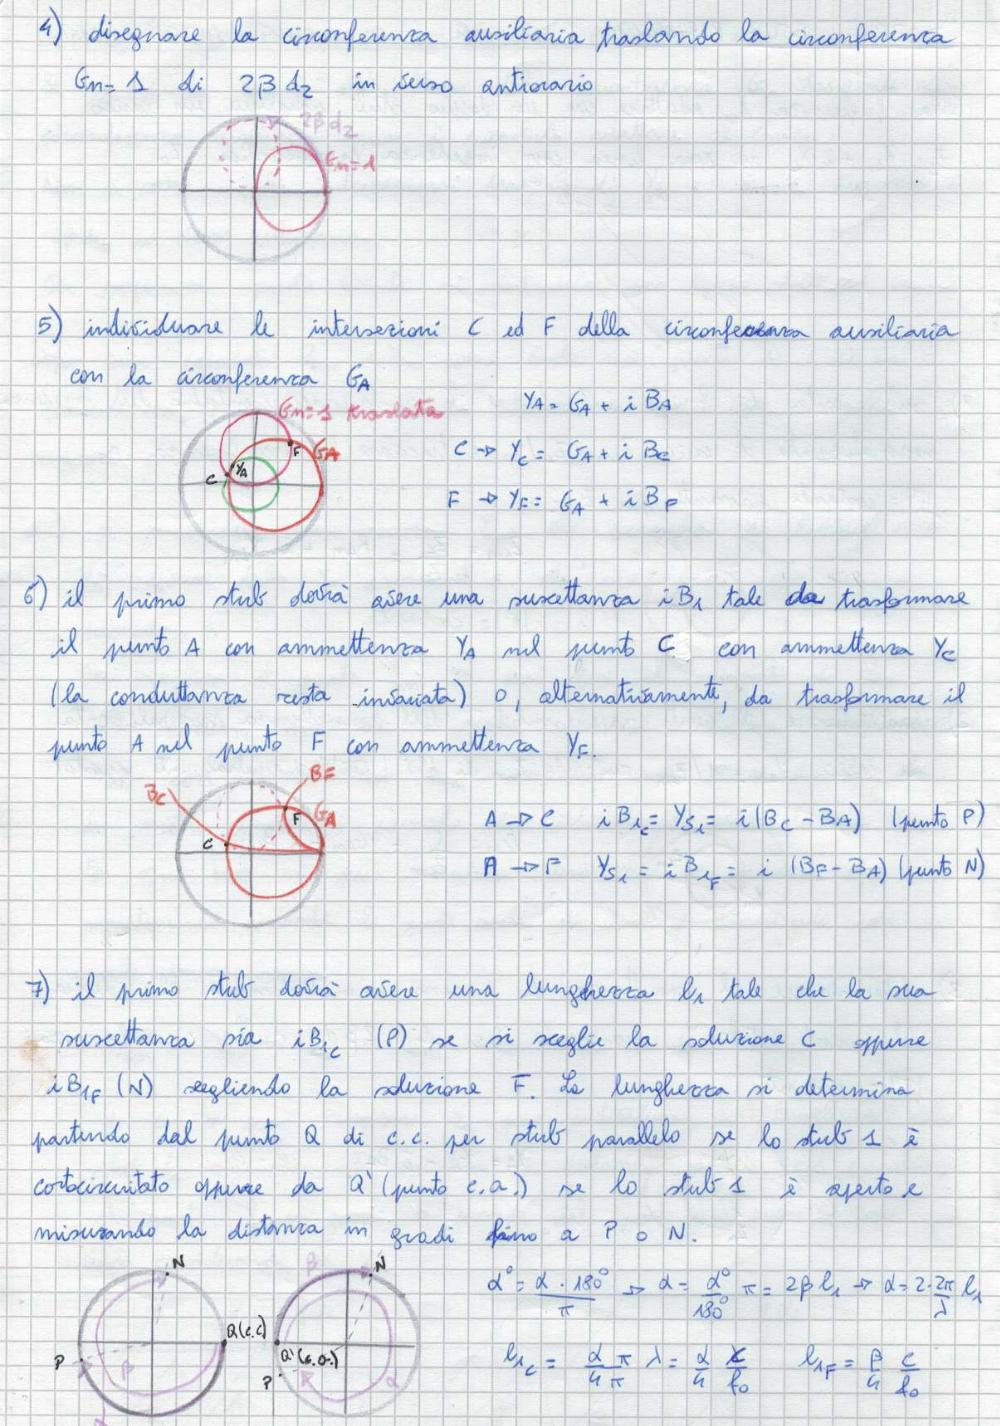 4) disegnare la circonferenza ausiliaria traslando la circonferenza
Gn=1 di 2βd₂ in senso antiorario
2βd₂
Gn=1
5) individuare le intersezioni C ed F della circonferenza ausiliaria
con la circonferenza GA
Gn=1 traslata
F GA
YA
C
YA = GA + iBA
C → YC = GA + iBC
F → YF = GA + iBF
6) il primo stub dovrà avere una suscettanza iB₁ tale da trasformare
il punto A con ammettenza YA nel punto C con ammettenza YC
(la conduttanza resta invariata) o, alternativamente, da trasformare il
punto A nel punto F con ammettenza YF.
BC
BF
F GA
C
A → C iB₁C = YS₁ = i(BC - BA) (punto P)
A → F YS₁ = iB₁F = i (BF - BA) (punto N)
7) il primo stub dovrà avere una lunghezza l₁ tale che la sua
suscettanza sia iB₁C (P) se si sceglie la soluzione C oppure
iB₁F (N) scegliendo la soluzione F. La lunghezza si determina
partendo dal punto Q di c.c. per stub parallelo se lo stub 1 è
cortocircuitato oppure da Q' (punto c.a.) se lo stub 1 è aperto e
misurando la distanza in gradi fino a P o N.
N
Q(c.c.)
P
β
α
β
N
Q'(c.a.)
P
α
α° = α · 180° / π → α = α° / 180° π = 2βl₁ → α = 2 · 2π / λ l₁
l₁C = α / 4π λ = α / 4 c / f₀ l₁F = β / 4 c / f₀